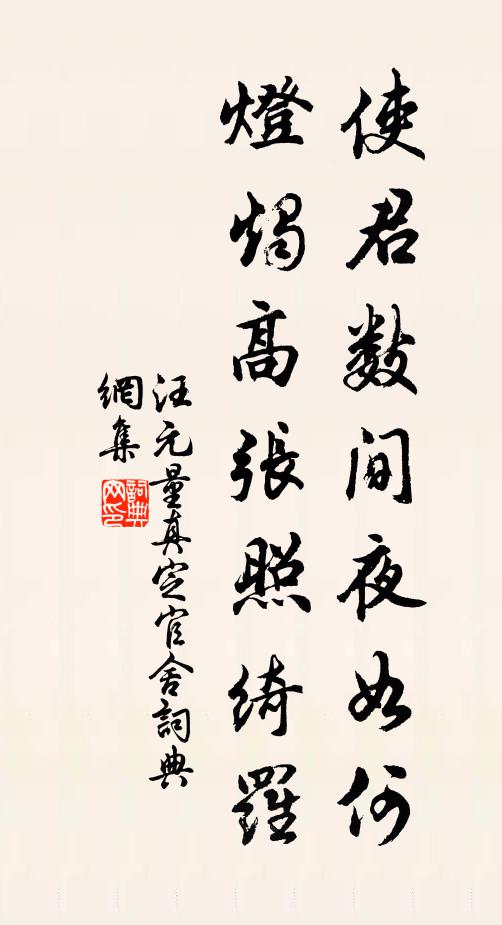 使君數問夜如何
燈燭高張照綺羅
汪元量真定官舍詞典
網集
詞典網印